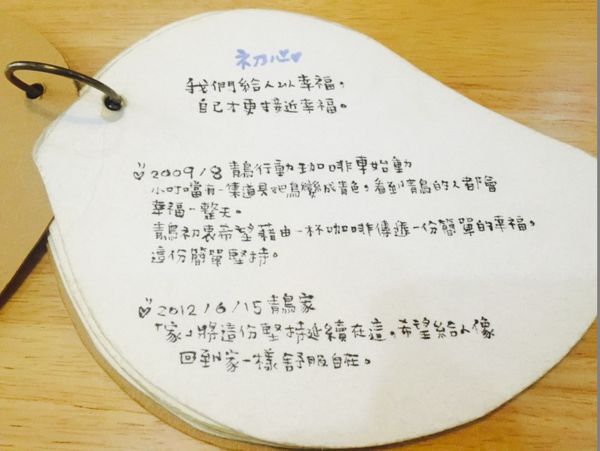 初心♥
我們給人以幸福,
自己才更接近幸福。
2009/8 青鳥行動珈啡車始動
小叮噹有一集道具把鳥變成青色,看到青鳥的人都會
幸福一整天。
青鳥初衷希望藉由一杯咖啡傳遞一份簡單的幸福,
這份簡單堅持。
2012/6/15 青鳥家
「家」將這份堅持延續在這,希望給人像
回到家一樣舒服自在。